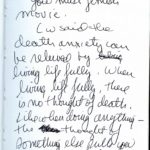 movie.
Cwsaid the
death anxiety can
be relieved by
living life fully. When
living life fully, there
is no thought of death.
Like when doing anything –
the thought of
something else